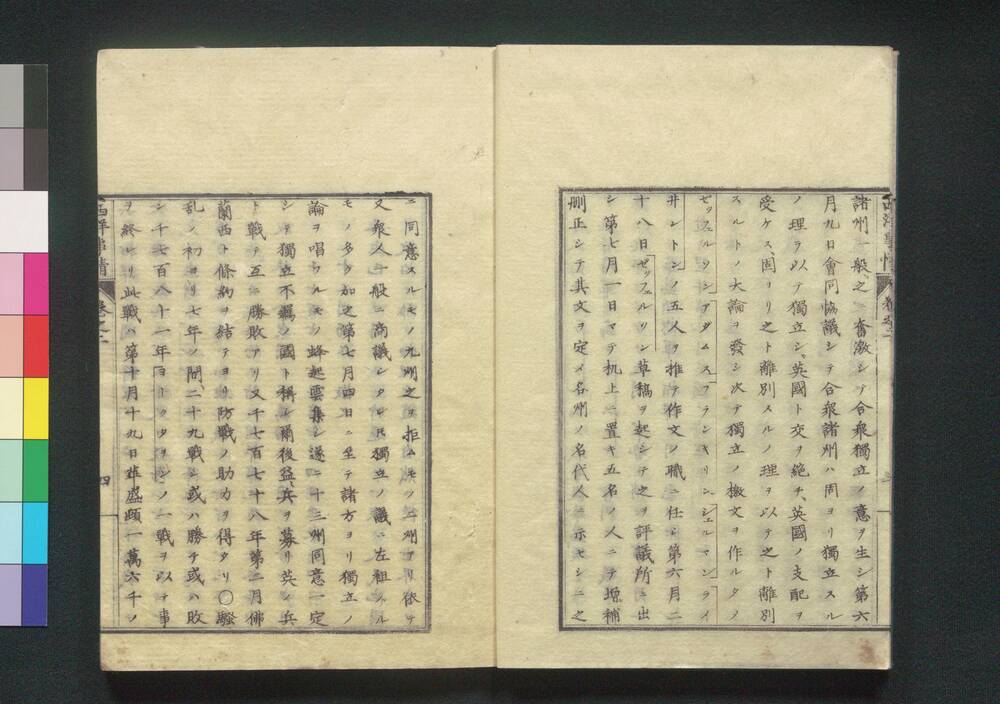 諸州一般之ニ奮激シテ合衆獨立ノ意ヲ生シ第六
月九日會同協議シテ合衆諸州ハ固ヨリ獨立スル
ノ理ヲ以テ獨立シ英國ト交ヲ絶チ英國ノ支配ヲ
受ケス固ヨリ之ト離別スルノ理ヲ以テ之ト離別
スルトノ大論ヲ發シ次テ獨立ノ檄文ヲ作ルタメ
ゼッフェルソンアダムスフランキリンシェルマンライ
井ントンノ五人ヲ推テ作文ノ職ニ任シ第六月二
十八日ゼッフェルソン草稿ヲ起シテ之ヲ評議所ニ出
シ第七月一日マテ机上ニ置キ五名ノ人ニテ増補
刪正シテ其文ヲ定メ名州ノ名代人ニ示セシニ之
ニ同意スルモノ九州之ヲ拒ムモノ二州アリ依テ
又衆人一般ニ商議シタレ𪜈獨立ノ議ニ左祖スル
モノ多ク加之第七月四日ニ至テ諸方ヨリ獨立ノ
論ヲ唱フルモノ蜂起雲集シ遂ニ十三州同意一定
シテ獨立不羈ノ國ト稱シ爾後益兵ヲ募リ英ノ兵
ト戰テ互ニ勝敗アリ又千七百七十八年第二月佛
蘭西ト條約ヲ結テヨリ防戰ノ助力ヲ得タリ〇騷
亂ノ初ヨリ七年ノ間二十九戰シ或ハ勝チ或ハ敗
シ千七百八十一年ヨークタウンノ一戰ヲ以テ事
ヲ終レリ此戰ハ第十月十九日英盛頓一萬六千ノ
西洋事情 卷之二
四
西洋事情 卷之二